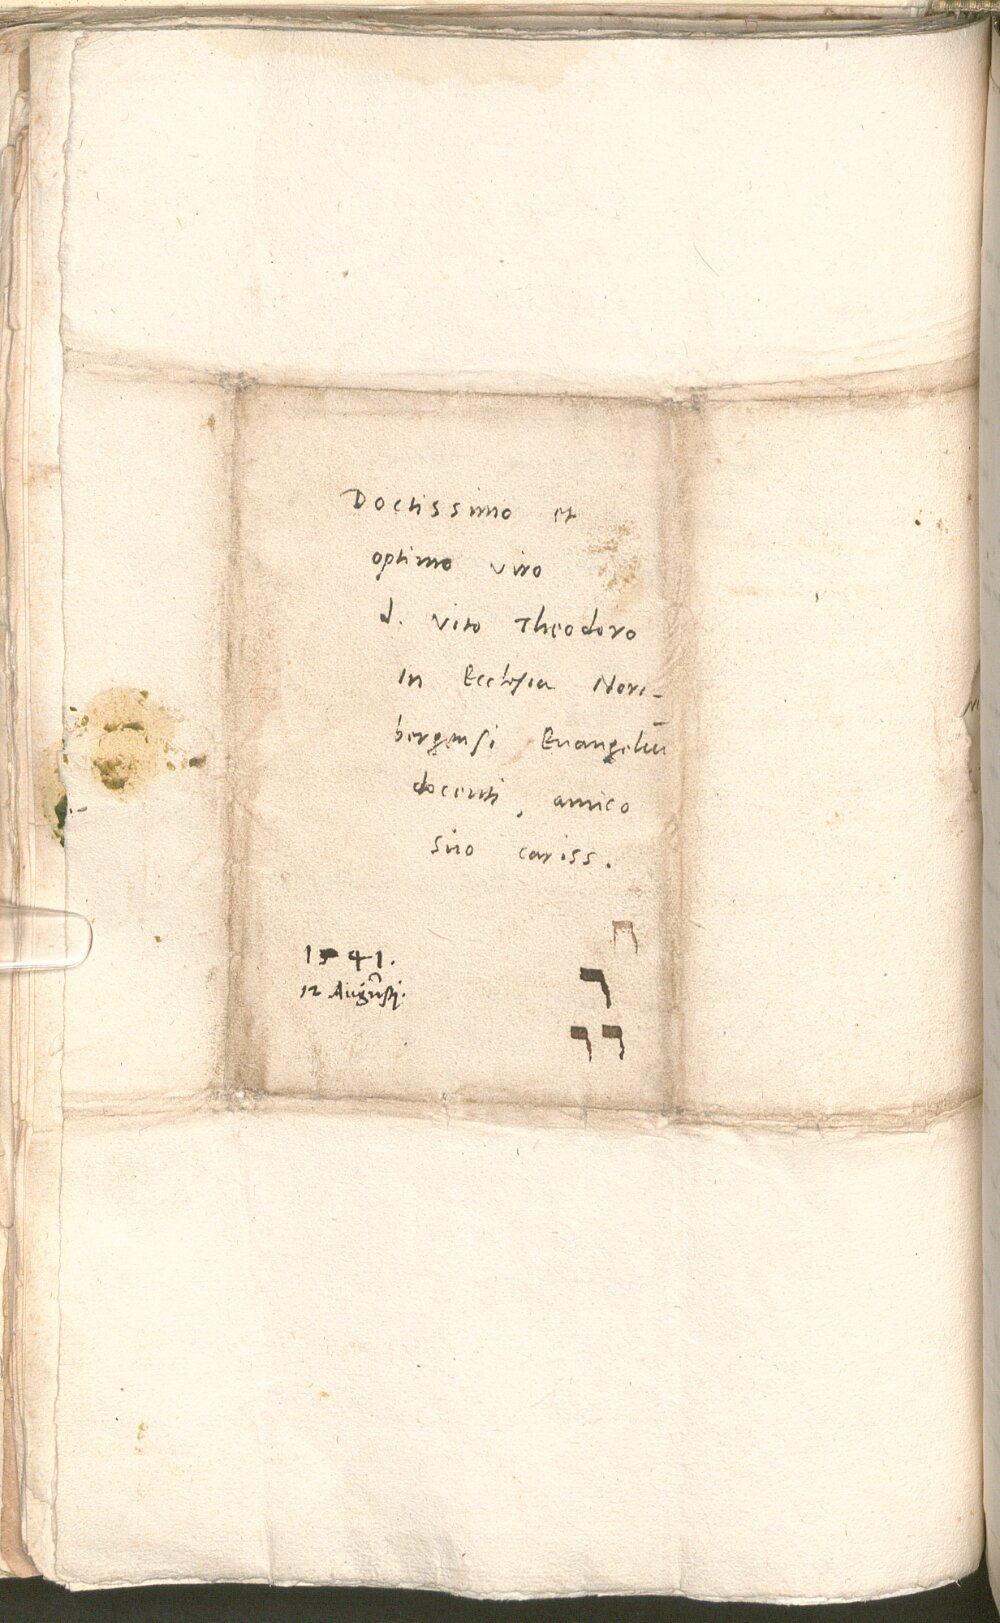 Doctissimo et
optimo viro
d. Vito Theodoro
in Ecclesia Nori-
bergensi Euangeliū
docenti, amico
suo cariss.
ח
1541.
12 Augusti.
ר
רר